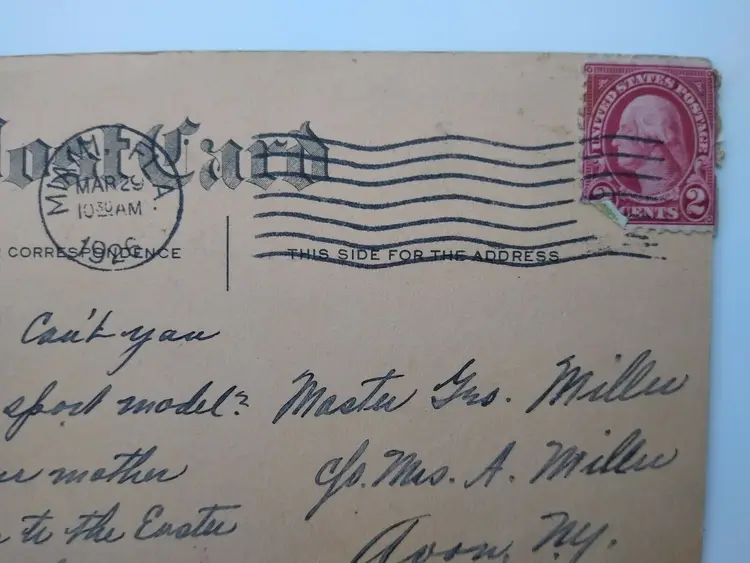 ost Card
MIAMI, FLA.
MAR 29
10 30 AM
UNITED STATES POSTAGE
CENTS 2
CORRESPONDENCE
THIS SIDE FOR THE ADDRESS
Can't you
sport model?
mother
to the Easter
Master Geo. Miller
c/o. Mrs. A. Miller
Avon, N.Y.